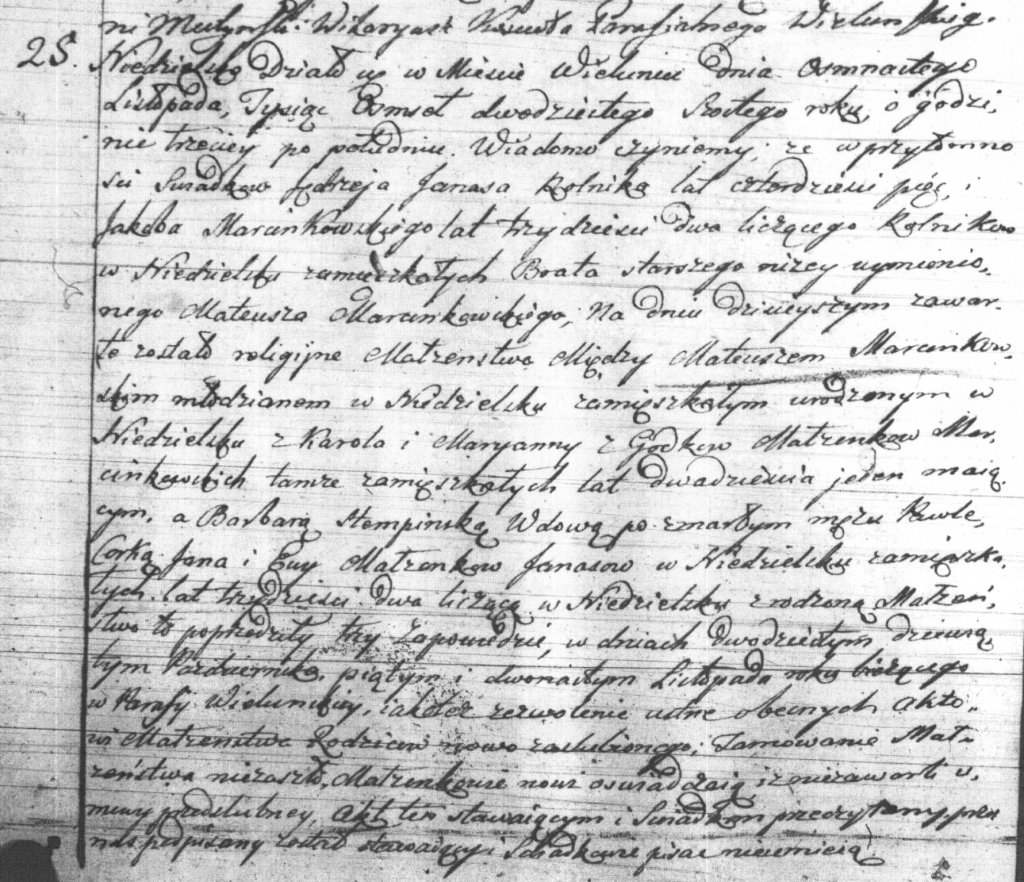 ni Mulyński Wikaryusz Kościoła Parafialnego Wieluńskieg.
25. Niedzielsko Działo się w Mieście Wieluniu dnia Osmnastego
Listopada, Tysiąc Osmset dwodziestego Szostego roku, o godzi,
nie trzeciey po południu. Wiadomo czyniemy, że w przytomno
ści Swiadkow Jędrzeja Janasa Rolnika lat czterdzieści pięć, i
Jakoba Marcinkowskiego lat trzydzieści dwa liczącego Rolnikow
w Niedzielsku zamieszkałych Brata starszego niżey wymienio,
nego Mateusza Marcinkowskiego, Na dniu dzisieyszym zawar-
te zostało religijne Małżenstwo Między Mateuszem Marcinkow,
skim młodzianem w Niedzielsku zamięszkałym urodzonym w
Niedzielsku z Karola i Maryanny z Godkow Małżenkow Mar,
cinkowskich tamże zamięszkałych lat dwadzieścia jeden maią
cym, a Barbarą Stempinską Wdową po zmarłym mężu Pawle,
Corką Jana i Ewy Małżenkow Janasow w Niedzielsku zamięszka,
łych. lat trzydzieści dwa liczącą w Niedzielsku zrodzoną Małżeń,
stwo to poprzedziły trzy Zapowiedzie, w dniach dwodziestym dziewią,
tym Pazdziernika, piątym i dwonastym Listopada roku bieżącego
w Parafij Wieluńskiey, iakoteż zezwolenie ustne obecnych Akto,,
wi Małżenstwa Rodzicow nowo zaslubionego; Tamowanie Mał-
żeństwa niezaszło, Małżenkowie nowi oswiadczaią iż niezawarli u,
mowy przedslubney, Akt ten stawaiącym i Swiadkom przeczytany, przez
nas podpisany został stawaiący i Swiadkowie pisac nieumieią